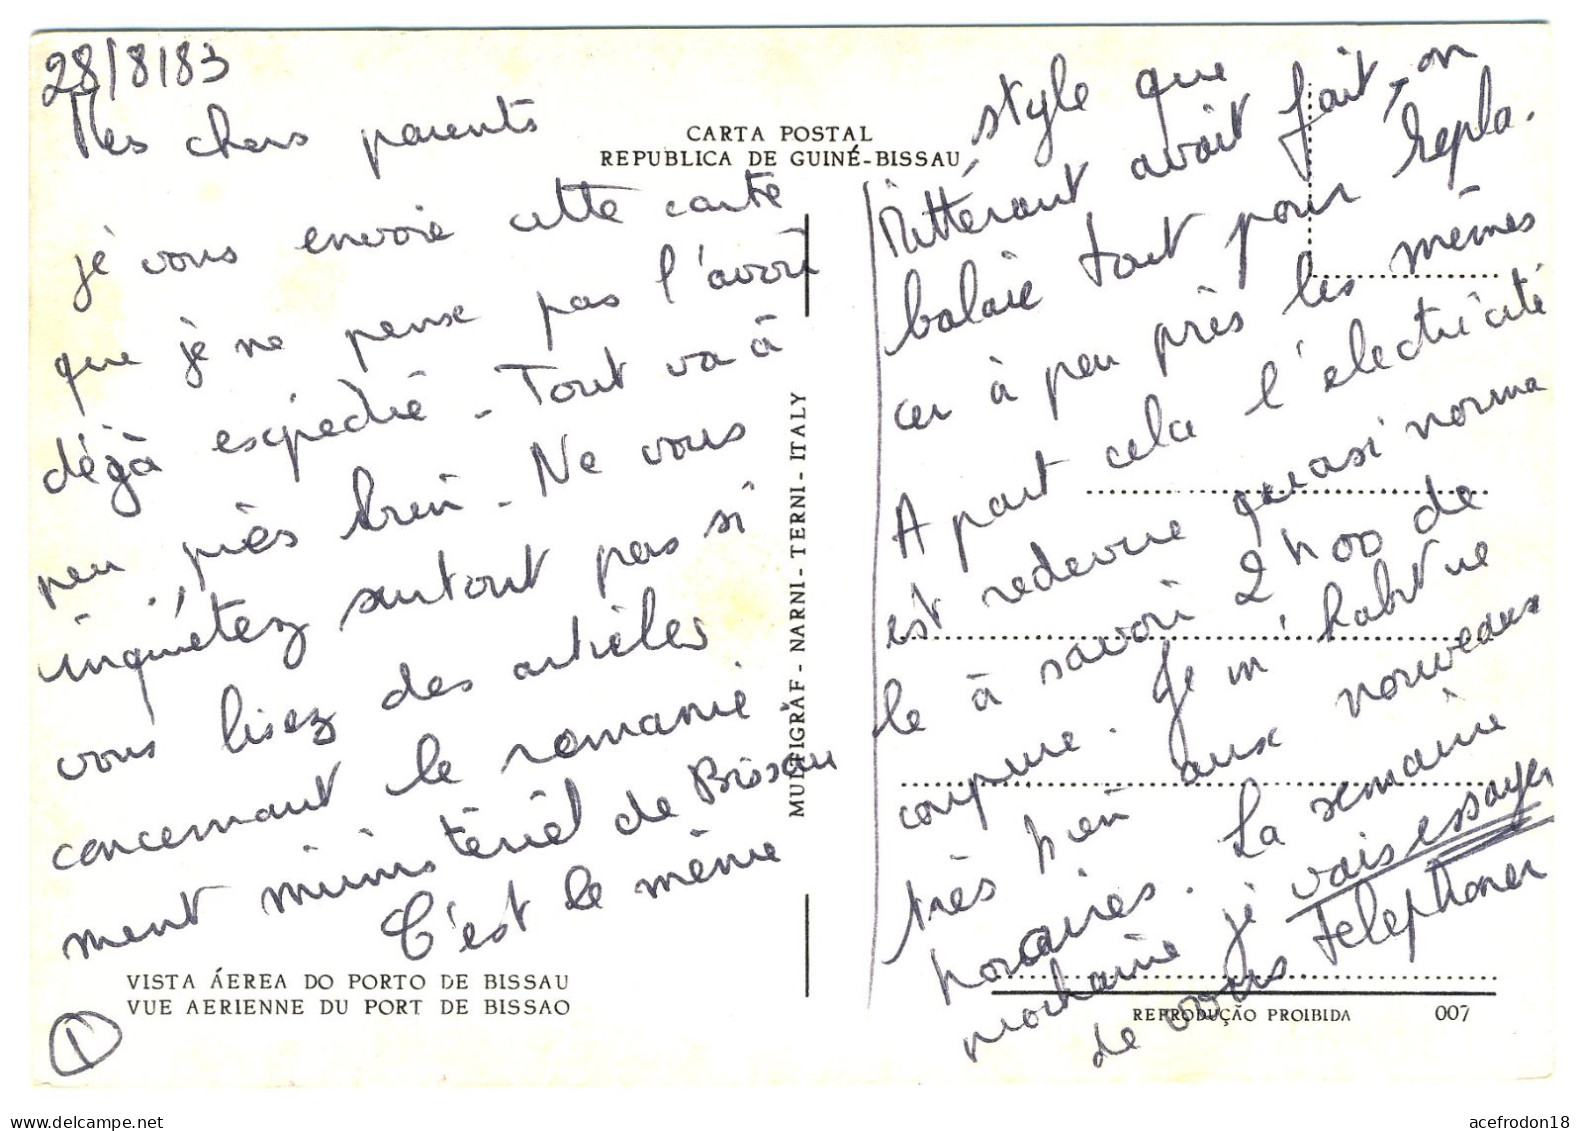 28/8/83
Mes chers parents
je vous envoie cette carte
que je ne pense pas l'avoir
déjà expédié - Tout va à
peu près bien - Ne vous
inquiétez surtout pas si
vous lisez des articles
concernant le remanie.
ment ministériel de Bissau
C'est le même
VISTA ÁEREA DO PORTO DE BISSAU
VUE AERIENNE DU PORT DE BISSAO
1
CARTA POSTAL
REPUBLICA DE GUINÉ-BISSAU
MULTIGRAF - NARNI - TERNI - ITALY
style que
Mittérant avait fait, on
balaie tout pour repla.
cer à peu près les mêmes
A part cela l'electricité
est redevenue quasi norma
le à savoir 2h00 de
coupure. Je m'habitue
très bien aux nouveaux
horaires. La semaine
prochaine je vais essayer
de vous telephoner
REPRODUÇÃO PROIBIDA 007
acefrodon18